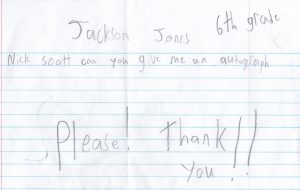 Jackson Jones 6th grade
Nick scott can you give me an autograph
Please! Thank
you!!